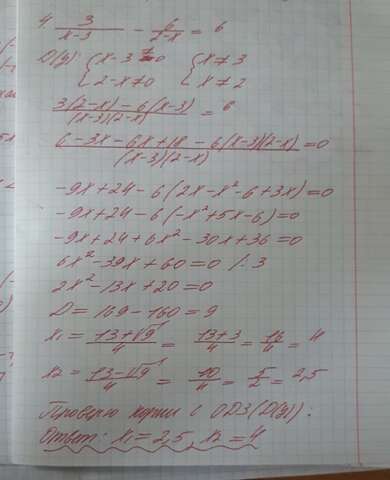 4. 3/(x-3) - 6/(2-x) = 6
D(y): { x-3≠0 { x≠3
{ 2-x≠0 { x≠2
(3(2-x)-6(x-3))/((x-3)(2-x)) = 6
(6-3x-6x+18-6(x-3)(2-x))/((x-3)(2-x)) = 0
-9x+24-6(2x-x²-6+3x)=0
-9x+24-6(-x²+5x-6)=0
-9x+24+6x²-30x+36=0
6x²-39x+60=0 /:3
2x²-13x+20=0
D=169-160=9
x1=(13+√9)/4=(13+3)/4=16/4=4
x2=(13-√9)/4=10/4=5/2=2,5
Проверю корни с ОДЗ(D(y)):
Ответ: x1=2,5, x2=4